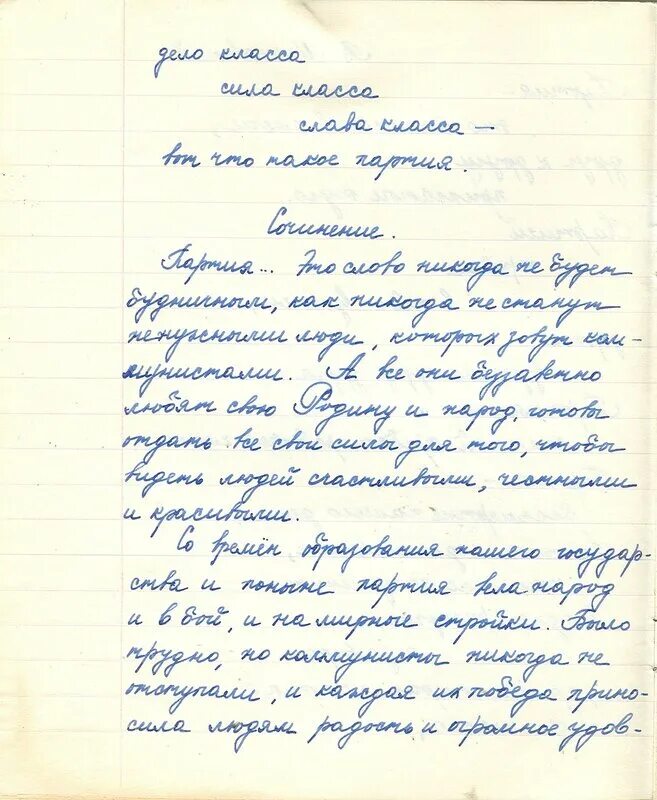 дело класса
сила класса
слава класса —
вот что такое партия.
Сочинение.
Партия... Это слово никогда не будет
будничным, как никогда не станут
ненужными люди, которых зовут ком-
мунистами. А все они беззаветно
любят свою Родину и народ, готовы
отдать все свои силы для того, чтобы
видеть людей счастливыми, честными
и красивыми.
Со времён образования нашего государ-
ства и поныне партия вела народ
и в бой, и на мирные стройки. Было
трудно, но коммунисты никогда не
отступали, и каждая их победа прино-
сила людям радость и огромное удов-